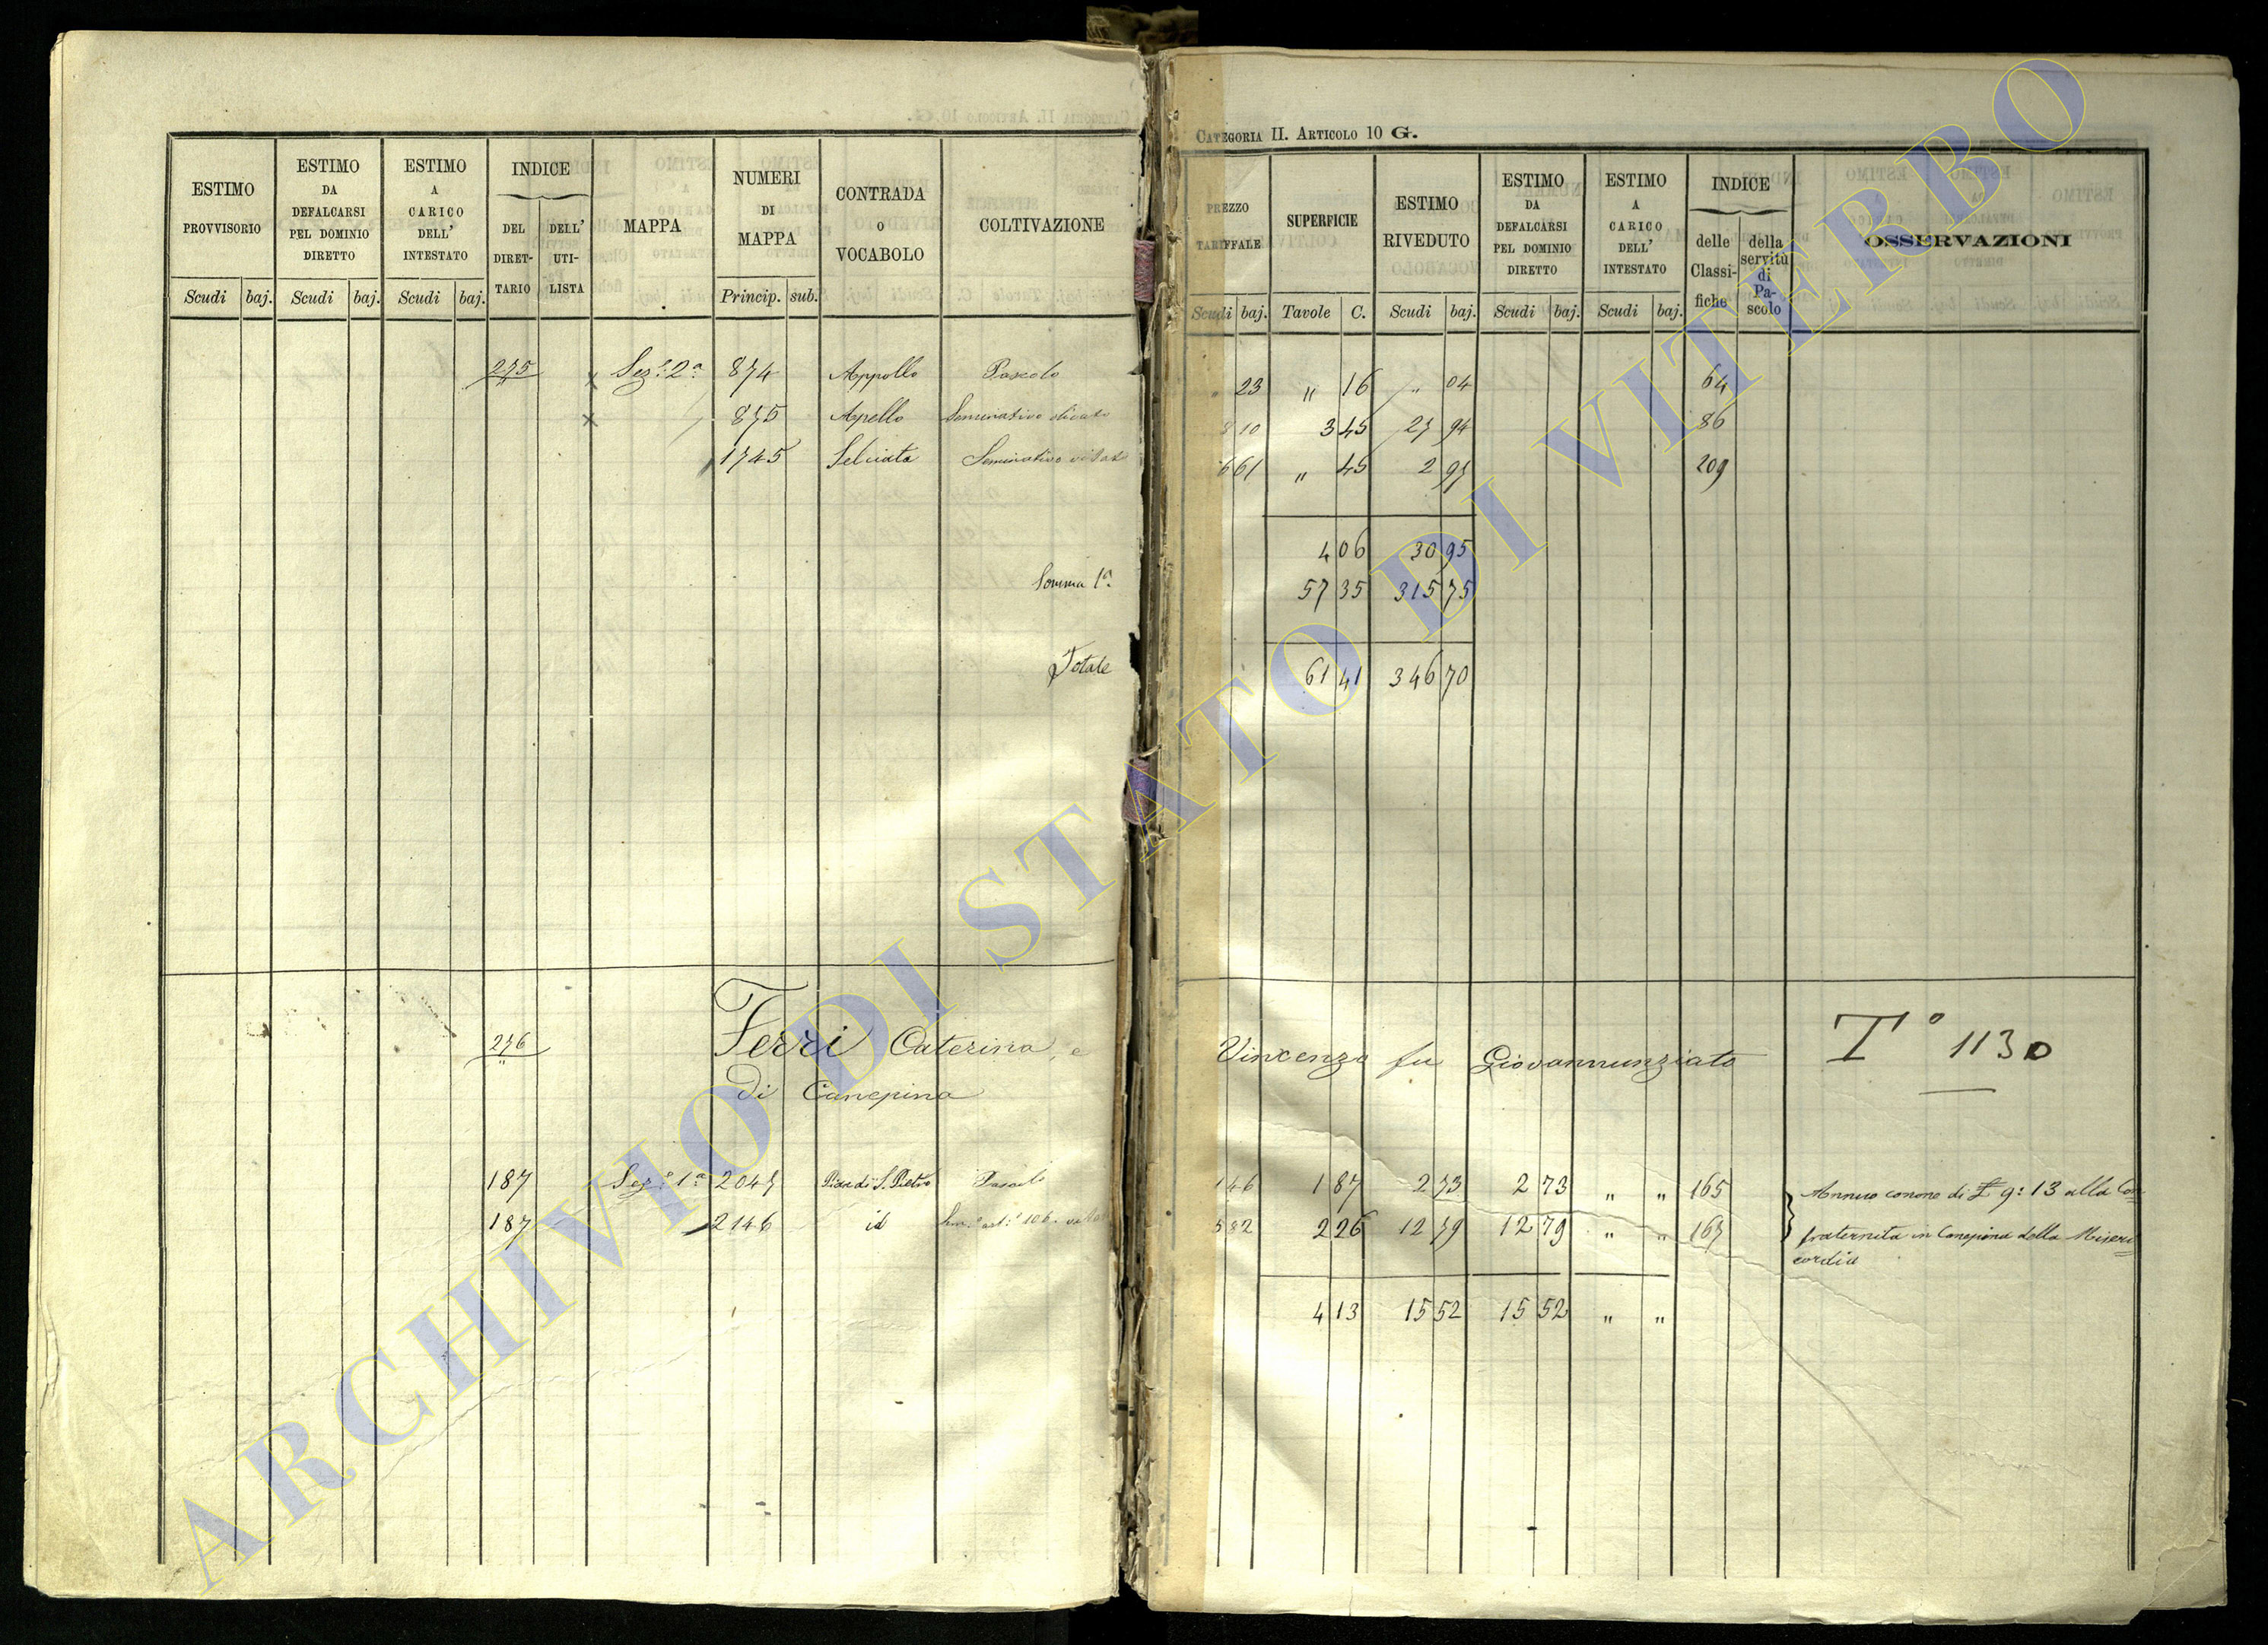 CATEGORIA II. ARTICOLO 10 G.
ESTIMO PROVVISORIO
ESTIMO DA DEFALCARSI PEL DOMINIO DIRETTO
ESTIMO A CARICO DELL' INTESTATO
INDICE
DEL DIRETTARIO
DELL' UTILISTA
MAPPA
NUMERI DI MAPPA
CONTRADA O VOCABOLO
COLTIVAZIONE
Scudi baj. Scudi baj. Scudi baj. Princip. sub.
PREZZO TARIFFALE
SUPERFICIE
ESTIMO RIVEDUTO
ESTIMO DA DEFALCARSI PEL DOMINIO DIRETTO
ESTIMO A CARICO DELL' INTESTATO
INDICE
delle Classifiche
della servitù di Pascolo
OSSERVAZIONI
Scudi baj. Tavole C. Scudi baj. Scudi baj. Scudi baj.
275 x Sez.e 2a 874 Appollo Pascolo " 23 " 16 " 04 64
x 875 Apello Seminativo olivato 8 10 3 45 27 94 86
1745 Selciata Seminativo vitato 6 61 " 45 2 97 209
4 06 30 95
Somma 1a 57 35 315 75
Totale 61 41 346 70
276 Ferri Caterina, e Vincenzo fu Giovannunziato To 1130
di Canepina
187 Sez.e 1a 2047 Pian di S. Pietro Pascolo 1 46 1 87 2 73 2 73 " " 165 Annuo canone di £ 9:13 alla Con
187 2146 id 5 82 2 26 12 79 12 79 " " 167 fraternita in Canepina della Miseri
cordia
4 13 15 52 15 52 " "
ARCHIVIO DI STATO DI VITERBO